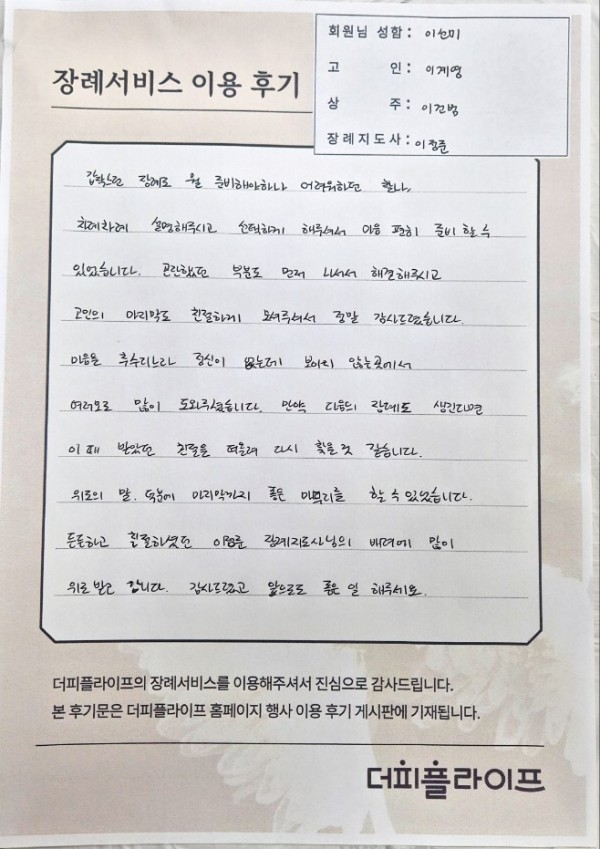 회원님 성함: 이선미
고 인: 이계영
상 주: 이건범
장례지도사: 이정준
장례서비스 이용 후기
갑작스런 장례로 뭘 준비해야하나 어려워하던 찰나,
차례차례 설명해주시고 선택하게 해주셔서 마음 편히 준비 할 수
있었습니다. 곤란했던 부분도 먼저 나서서 해결해주시고
고인의 마지막도 친절하게 모셔주셔서 정말 감사드렸습니다.
마음을 추수리느라 정신이 없는데 보이지 않는곳에서
여러모로 많이 도와주셨습니다. 만약 다음의 장례도 생긴다면
이 때 받았던 친절을 떠올려 다시 찾을 것 같습니다.
위로의 말. 덕분에 마지막까지 좋은 마무리를 할 수 있었습니다.
든든하고 친절하셨던 이정준 장례지도사님의 배려에 많이
위로 받고 갑니다. 감사드렸고 앞으로도 좋은 일 해주세요.
더피플라이프의 장례서비스를 이용해주셔서 진심으로 감사드립니다.
본 후기문은 더피플라이프 홈페이지 행사 이용 후기 게시판에 기재됩니다.
더피플라이프